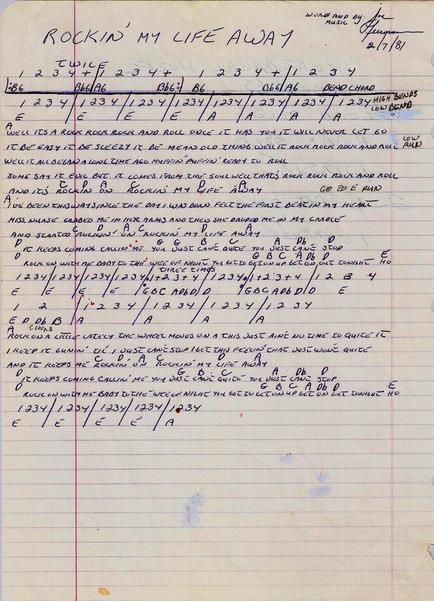 WORD AND BY Joe
MUSIC
ROCKIN' MY LIFE AWAY
2/7/81
TWICE
1 2 3 4 + / 1 2 3 4 + 1 2 3 4 + / 1 2 3 4
B6 Bb6 A6 Bb6 B6 Bb6 A6 BEND CHORD
1 2 3 4 / 1 2 3 4 / 1 2 3 4 / 1 2 3 4 / 1 2 3 4 / 1 2 3 4 / 1 2 3 4 / 1 2 3 4 HIGH BENDS
LOW BEND
E E E E A A A A
A
WELL IT'S A ROCK ROCK ROCK AND ROLL ONCE IT HAS YOU IT WILL NEVER LET GO
LOW RUN
IT BE EASY IT BE SLEEZY IT BE MEAN OLD THING WELL IT ROCK ROCK ROCK AND ROLL
WELL IT ALL BEGAN A LONG TIME AGO HUFFIN' PUFFIN' READY TO ROLL
SOME SAY IT EVIL BUT IT COMES FROM THE SOUL WELL THAT'S ROCK ROCK ROCK AND ROLL
C D A C D A
AND IT'S ROCKIN' ON ROCKIN' MY LIFE AWAY GO TO E RUN
A
I'DE BEEN THIS WAY SINCE THE DAY I WAS BORN FELT THE FIRST BEAT IN MY HEART
MISS NURSE GRABBED ME IN HER ARMS AND THEN SHE DROPED ME IN MY CRADLE
C D A C D A
AND STARTED ROCKIN' ON ROCKIN' MY LIFE AWAY
D G B C A Db D
IT KEEPS COMING CALLIN' ME YOU JUST CAN'T QUITE YOU JUST CAN'T STOP
G B C A Db D E
ROCK ON WITH ME BABY TO THE WEE OF NIGHT YOU GOT TO GET ON UP GET ON GET TONIGHT HO
THREE TIMES
1 2 3 4 / 1 2 3 4 / 1 2 3 4 / 1 2 3 4 / 1 + 2 + 3 + 4 / 1 2 3 4 / 1 + 2 + 3 + 4 / 1 2 3 4
E E E E G B C A Db D D G B C A Db D D E
1 2 / 1 2 3 4 / 1 2 3 4 / 1 2 3 4 / 1 2 3 4
E D Db B A A A A
A
ROCK ON A LITTLE LATELY THE WHEEL MOVES ON A THIS JUST AIN'T NO TIME TO QUITE IT
I KEEP IT RUNNIN' TIL' I JUST CAN'T STOP I GET THIS FEELIN' THAT JUST WON'T QUITE
C D A C D A
AND IT KEEPS ME ROCKIN' ON ROCKIN' MY LIFE AWAY
D G B C A Db D
IT KEEPS COMING CALLIN' ME YOU JUST CAN'T QUITE YOU JUST CAN'T STOP
G B C A Db D E
ROCK ON WITH ME BABY TO THE WEE OF NIGHT YOU GOT TO GET ON UP GET ON GET TONIGHT HO
1 2 3 4 / 1 2 3 4 / 1 2 3 4 / 1 2 3 4 / 1 2 3 4
E E E E A